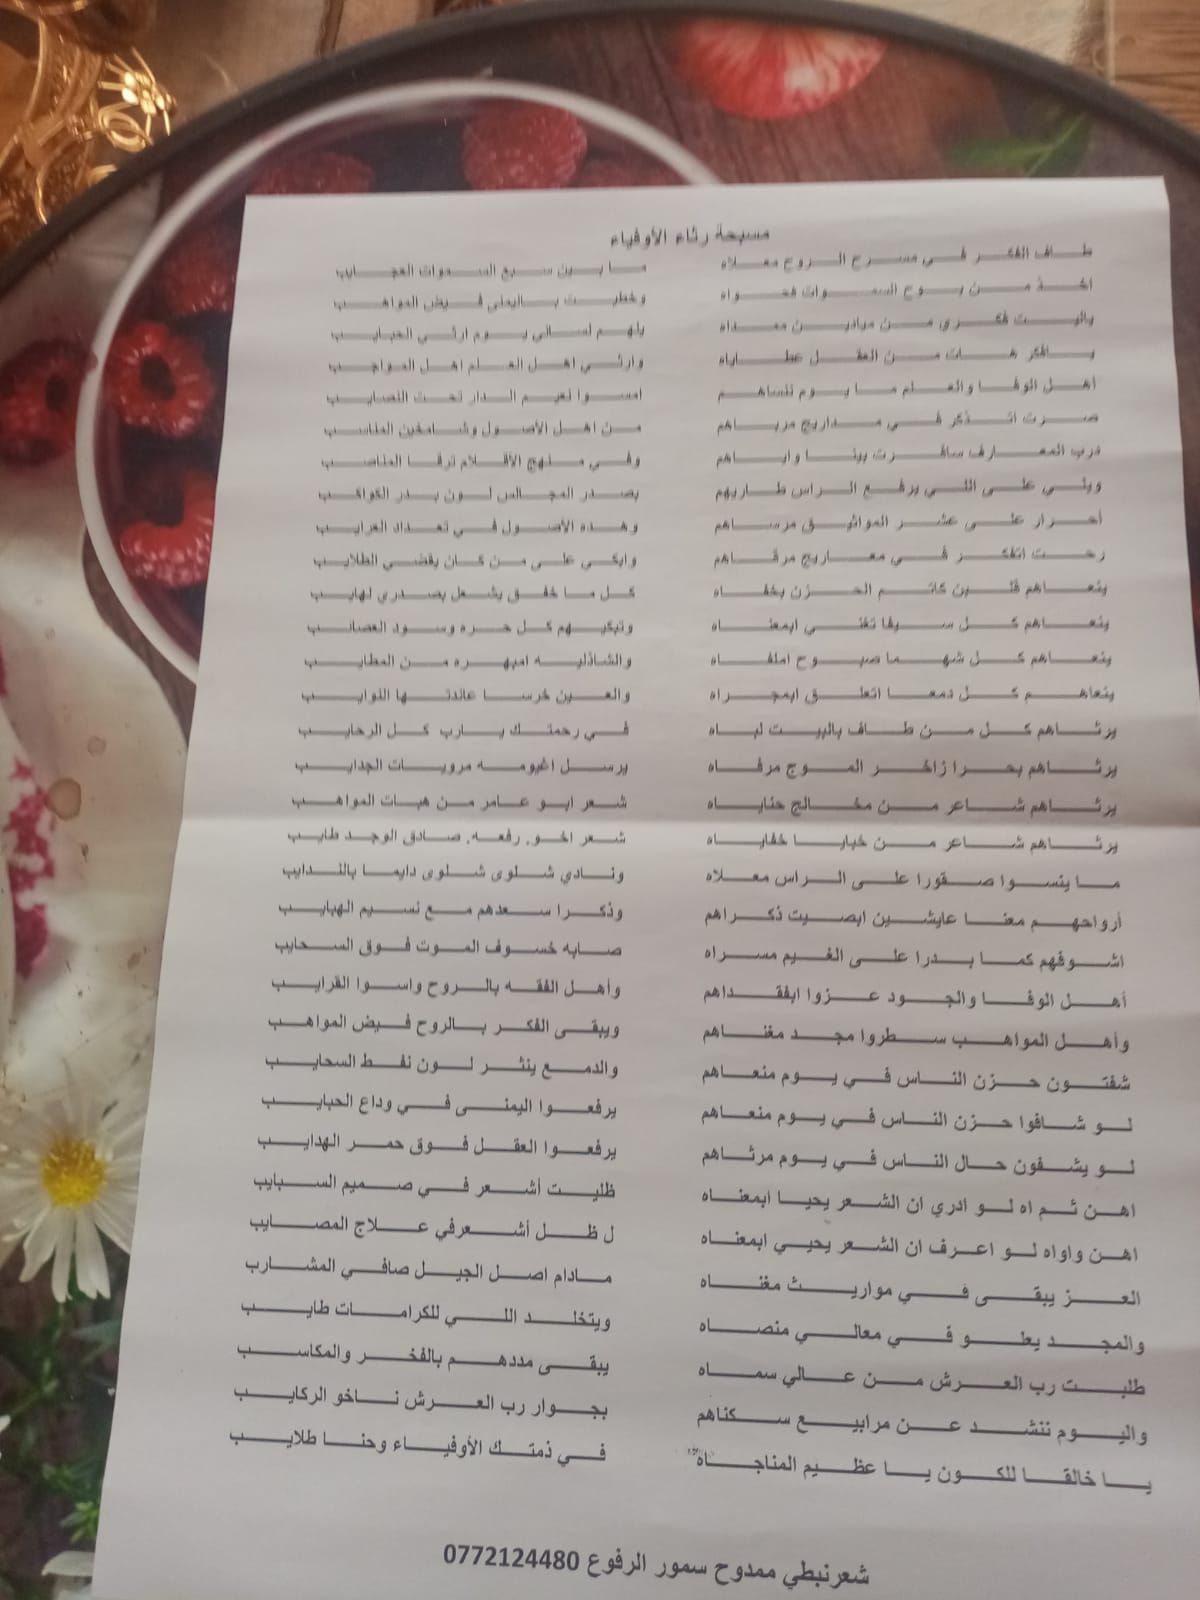 مسبحة رثاء الأوفياء
طاف الفكر في مسرح الروح معلاه ما بين سبع السموات العجايب
اخذ من بوح السموات فحواه وخطيت باليمنى فيض المواهب
ياليت فكري من ميادين مداه يلهم لساني يوم ارثي الحبايب
يافكر هات من العقل عطاياه وارثي اهل العلم اهل المواجب
أهل الوفا والعلم ما يوم ننساهم امسوا نعيم الدار تحت النصايب
صرت اتذكر في مداريج مرباهم من اهل الأصول وشامخين المناسب
درب المعارف سافرت بينا واياهم وفي منهج الأقلام ترقا المناصب
ويني على اللي يرفع الراس طاريهم بصدر المجالس لون بدر الكواكب
أحرار على عشر المواثيق مرساهم وهذه الأصول في تعداد العرايب
رحت اتفكر في معاريج مرقاهم وابكي على من كان يقضي الطلايب
ينعاهم قلبن كاتم الحزن بخفاه كل ما خفق يشعل بصدري لهايب
ينعاهم كل سيفا تغنى ابمعناه وتبكيهم كل حره وسود العصايب
ينعاهم كل شهما صبوح املفاه والشاذليه امبهره من المطايب
ينعاهم كل دمعا اتعلق ابمجراه والعين خرسا عاندتها النوايب
يرثاهم كل من طاف بالبيت لباه في رحمتك يارب كل الرحايب
يرثاهم بحرا زاخر الموج مرفاه يرسل اغيومه مرويات الجدايب
يرثاهم شاعر من مخالج حناياه شعر ابو عامر من هبات المواهب
يرثاهم شاعر من خبايا خفاياه شعر اخو رفعه صادق الوجد طايب
ما ينسوا صقورا على الراس معلاه ونادي شلوى شلوى دايما بالندايب
أرواحهم معنا عايشين ابصيت ذكراهم وذكرا سعدهم مع نسيم الهبايب
اشوفهم كما بدرا على الغيم مسراه صابه خسوف الموت فوق السحايب
أهل الوفا والجود عزوا ابفقداهم وأهل الفقه بالروح واسوا القرايب
وأهل المواهب سطروا مجد مغناهم ويبقى الفكر بالروح فيض المواهب
شفتون حزن الناس في يوم منعاهم والدمع ينثر لون نقط السحايب
لو شافوا حزن الناس في يوم منعاهم يرفعوا اليمنى في وداع الحبايب
لو يشفون حال الناس في يوم مرثاهم يرفعوا العقل فوق حمر الهدايب
اهن ثم اه لو ادري ان الشعر يحيا ابمعناه ظليت أشعر في صميم السبايب
اهن واواه لو اعرف ان الشعر يحيي ابمعناه ل ظل أشعرفي علاج المصايب
العز يبقى في مواريث مغناه مادام اصل الجيل صافي المشارب
والمجد يعلو في معالي منصاه ويتخلد اللي للكرامات طايب
طلبت رب العرش من عالي سماه يبقى مددهم بالفخر والمكاسب
واليوم ننشد عن مرابيع سكناهم بجوار رب العرش ناخو الركايب
يا خالقا للكون يا عظيم المناجاه في ذمتك الأوفياء وحنا طلايب
شعرنبطي ممدوح سمور الرفوع 0772124480